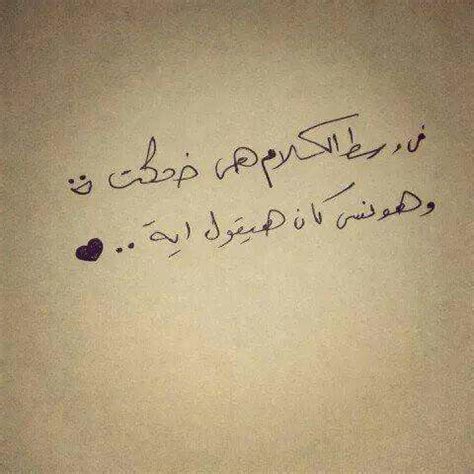 فى وسط الكلام هى ضحكت :)
وهو نسى كان هيقول اية .. ♥